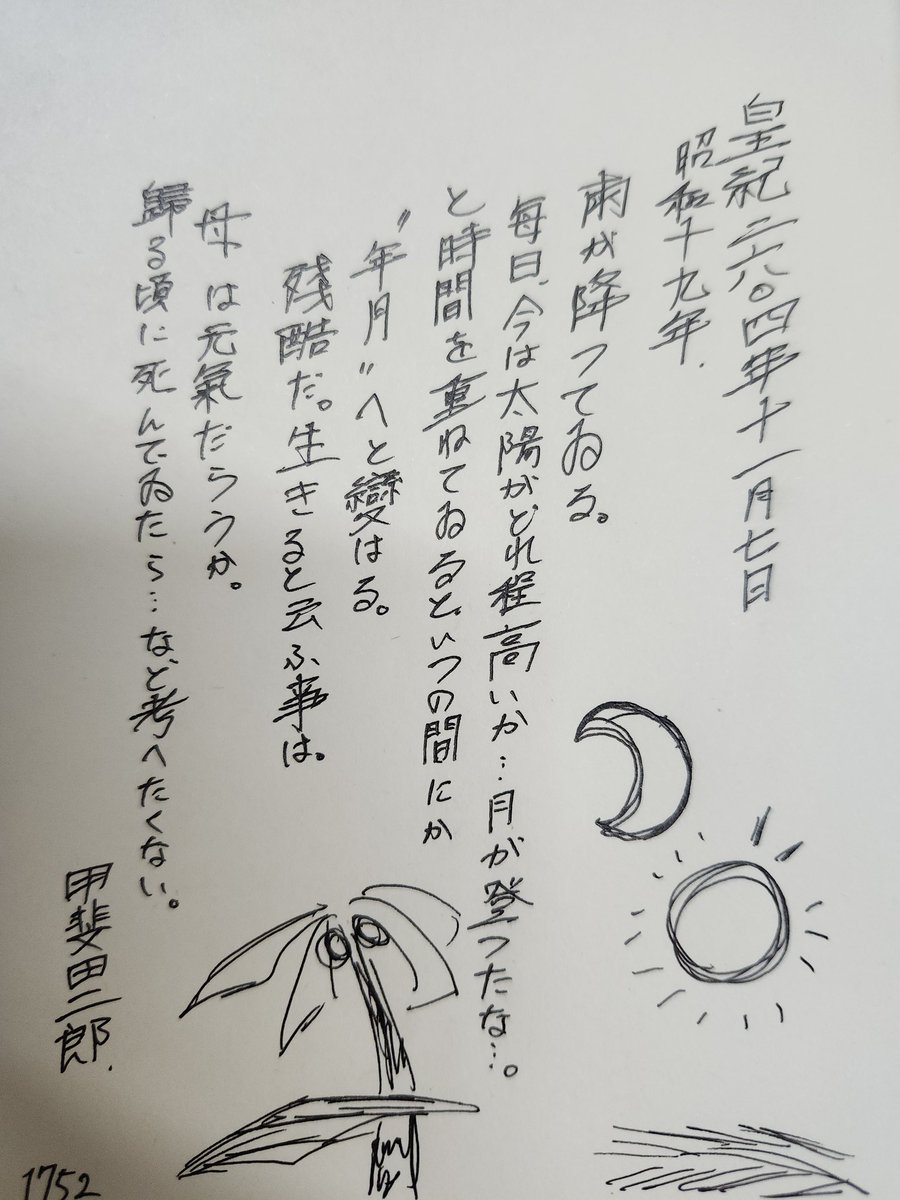 皇紀二六〇四年十一月七日
昭和十九年.
雨が降つてゐる。
毎日、今は太陽がどれ程高いか…月が登つたな…。
と時間を重ねてゐると、いつの間にか
〝年月〟へと變はる。
残酷だ。生きると云ふ事は。
母は元氣だらうか。
歸る頃に死んでゐたら…など考へたくない。
甲斐田二郎.
1752